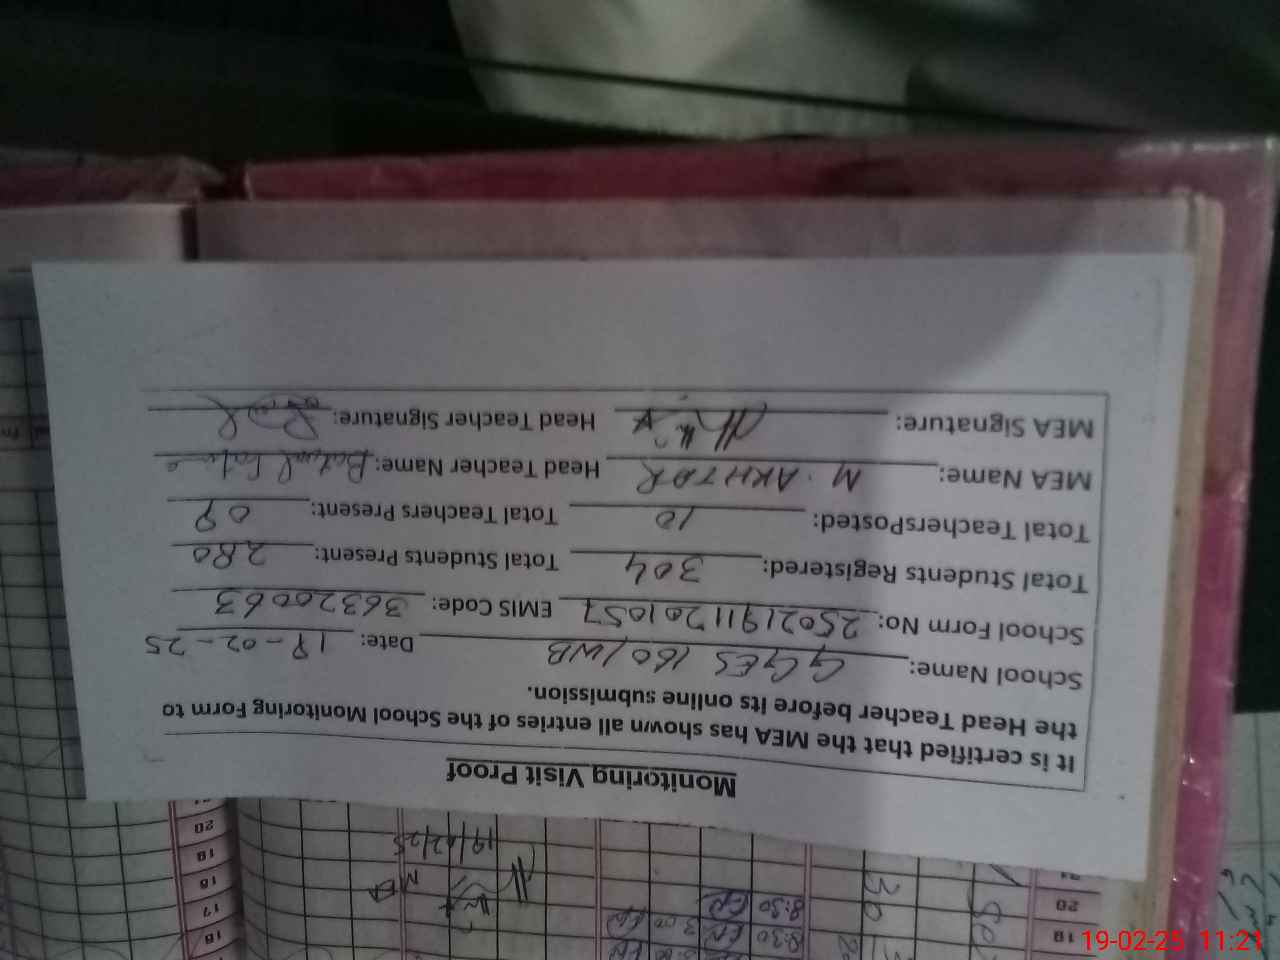 Monitoring Visit Proof
It is certified that the MEA has shown all entries of the School Monitoring Form to
the Head Teacher before its online submission.
School Name: GGES 160/WB Date: 19-02-25
School Form No: 250219117201057 EMIS Code: 36320063
Total Students Registered: 304 Total Students Present: 280
Total TeachersPosted: 10 Total Teachers Present: 09
MEA Name: M. AKHTAR Head Teacher Name: Batool Fatima
MEA Signature: Head Teacher Signature:
MEA
19/02/25
16
17
18
19
20
8:30
8:30 3:00
19
20
19-02-25 11:21